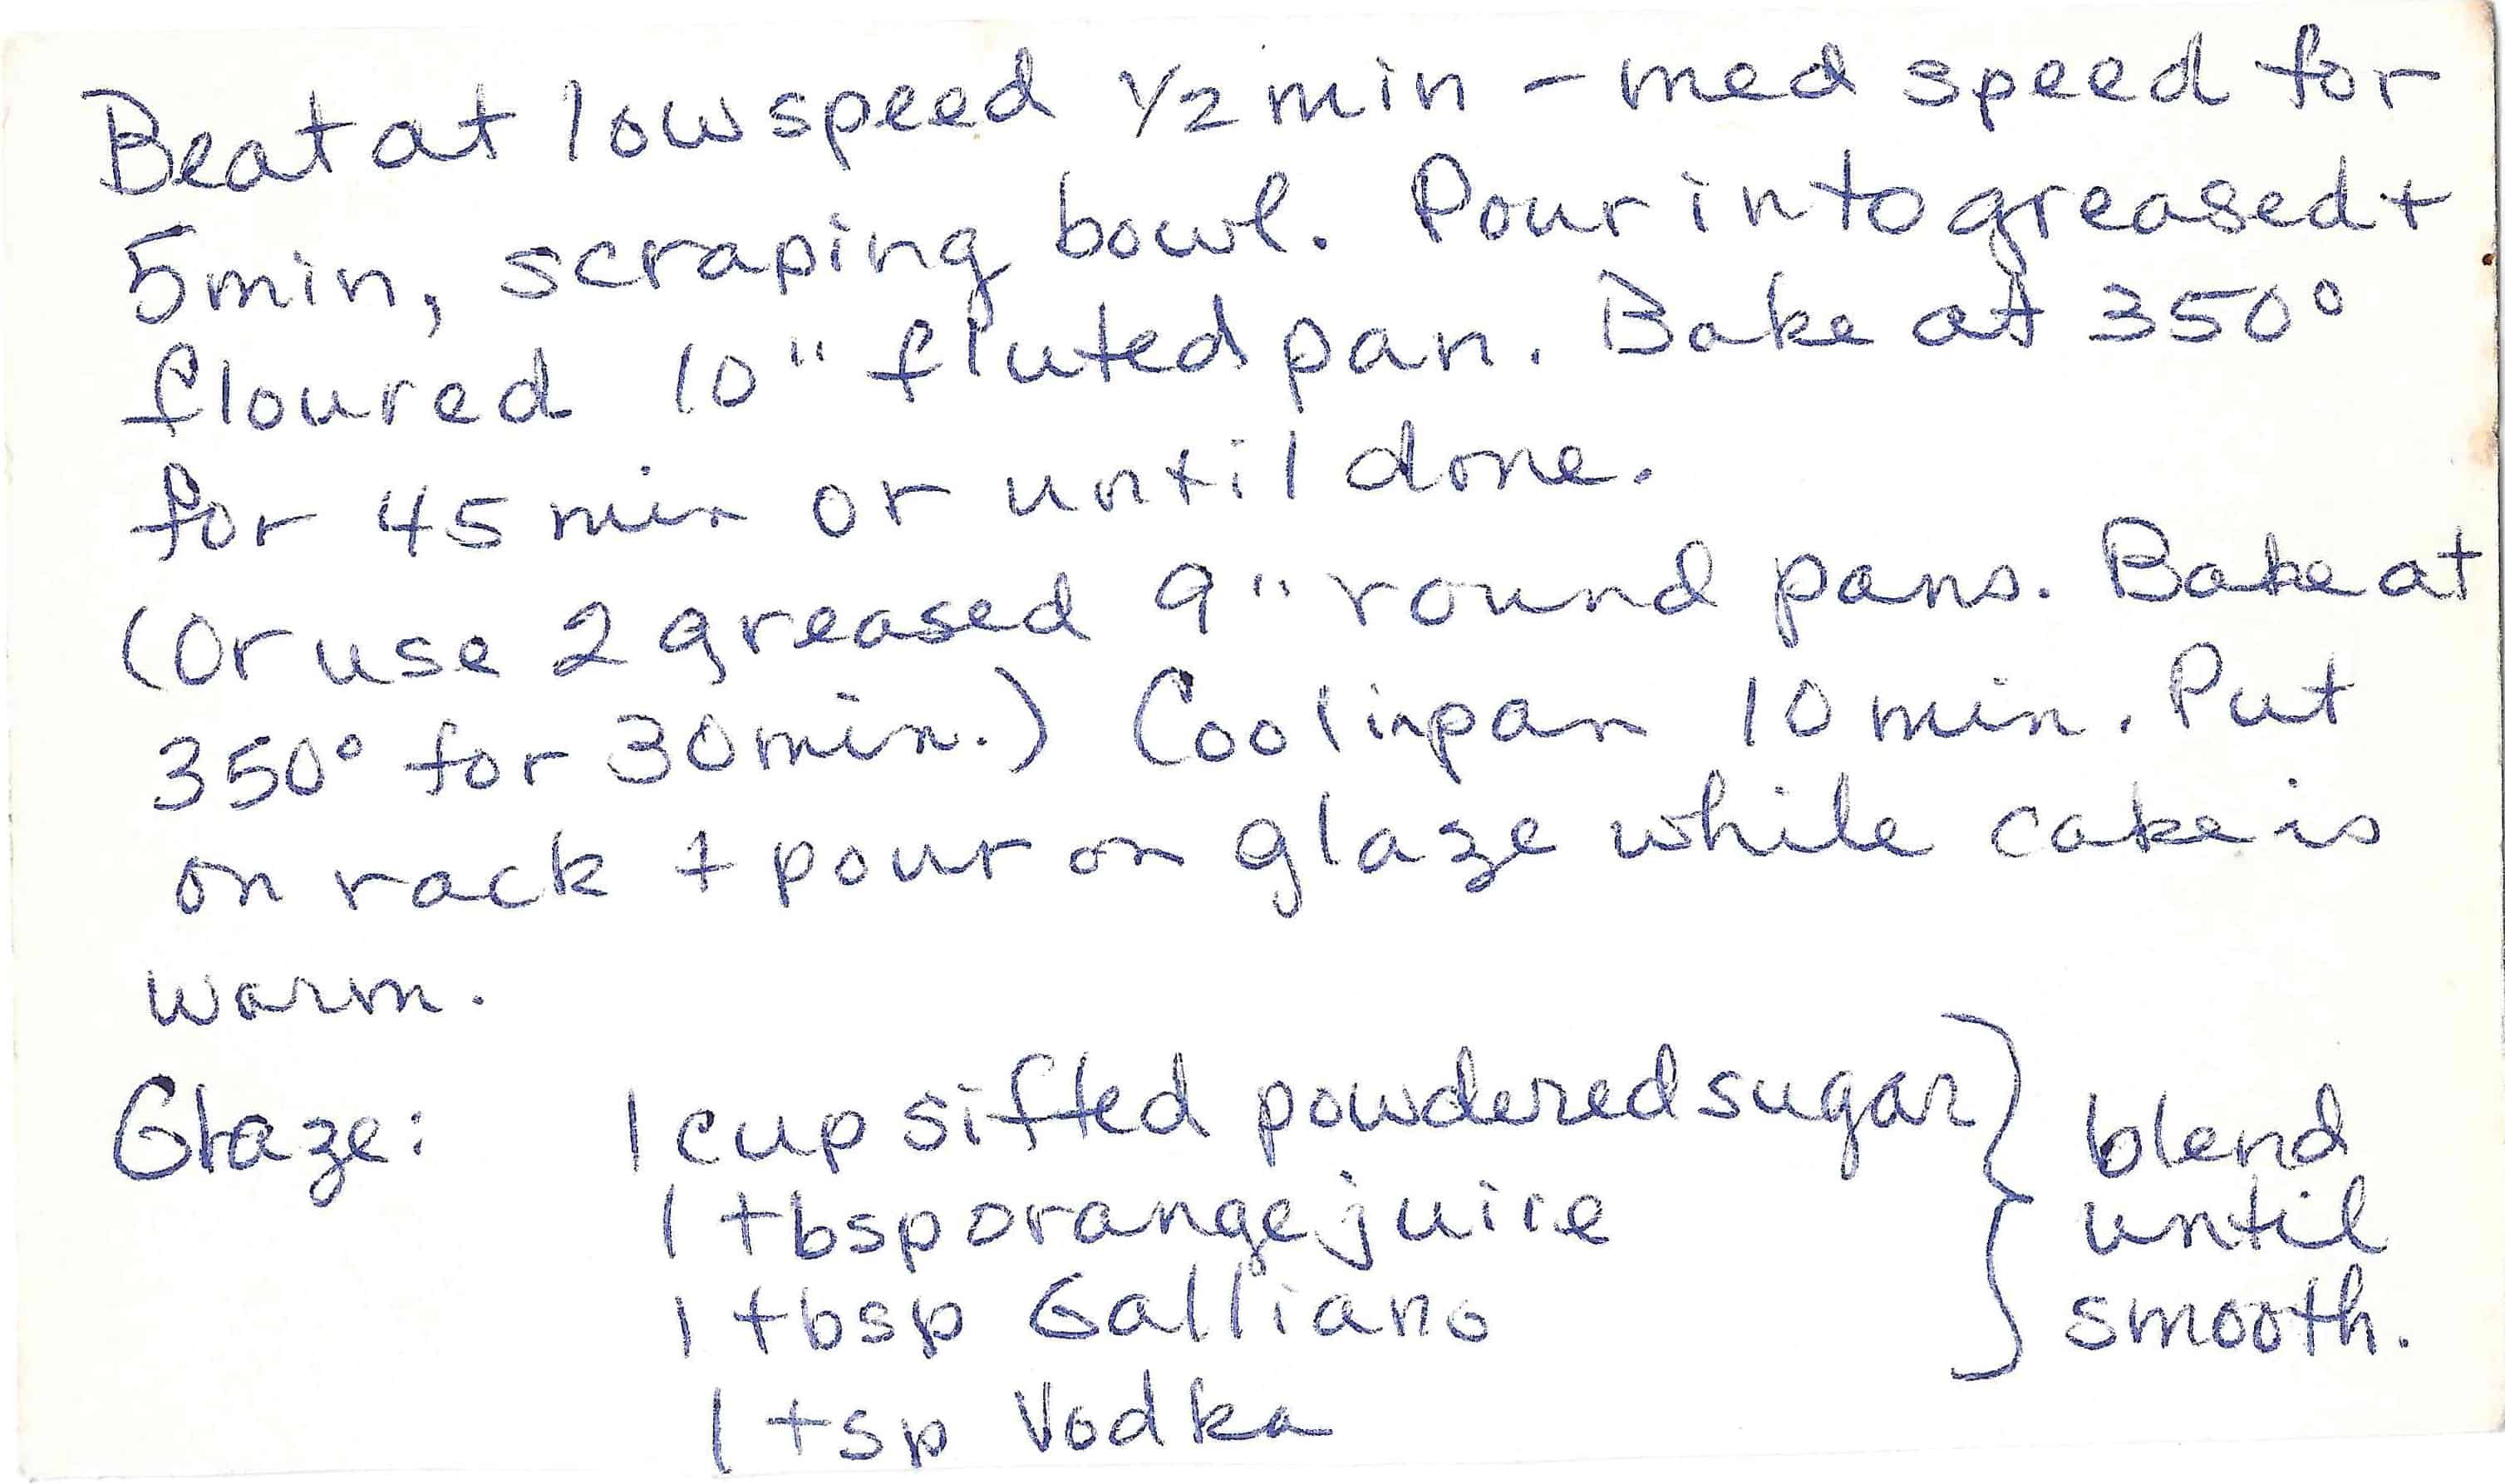 Beat at low speed 1/2 min - med speed for
5 min, scraping bowl. Pour into greased +
floured 10" fluted pan. Bake at 350°
for 45 min or until done.
(Or use 2 greased 9" round pans. Bake at
350° for 30 min.) Cool in pan 10 min. Put
on rack + pour on glaze while cake is
warm.
Glaze: 1 cup sifted powdered sugar } blend
1 tbsp orange juice until
1 tbsp Galliano smooth.
1 tsp Vodka